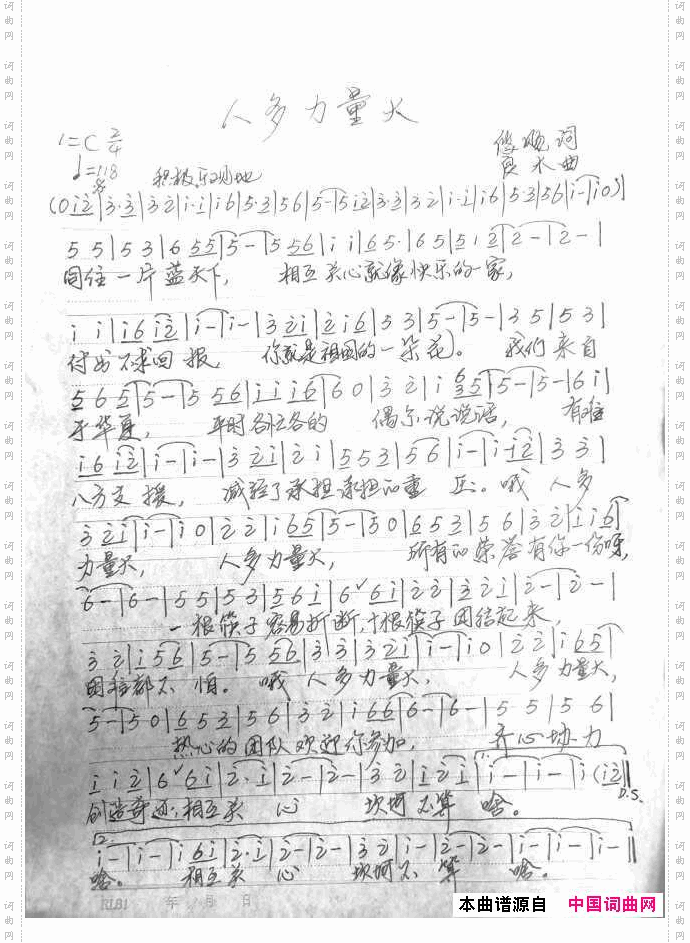 人多力量大
1=C 2/4
♩=118
词
良水 曲
积极 乐观地
(0 i 2|3·3|3 2|i·i|i 6|5·3|5 6|5-|5 i 2|3·3|3 2|i·i|i 6|5·3|5 6|i-|i 0)|
5 5|5 3|6 5 5|5-|5 5 6|i i|6 5·|6 5|5 1 2|2-|2-|
同住一片蓝天下， 相互关心就像快乐的一家，
i i|i 6 i 2|i-|i-|3 2 i|2 i 6|5 3|5-|5-|3 5|5 3|
付出不求回报， 你就是祖国的一朵花。 我们来自
5 6 5|5-|5 5 6|i i i 6|6 0|3 2|i 5|5-|5-|6 i|
于华夏， 平时各忙各的 偶尔说说话， 有难
i 6 i 2|i-|i-|3 2 i|2 i|5 5 3|5 6|i-|i- i 2|3 3|
八方支援， 减轻了承担承担的重压。哦 人多
3 2 i|i-|i 0|2 2|i 6 5|5-|5 0|6 5 3|5 6|3 2|i i 6|
力量大， 人多力量大， 所有的荣誉有你一份呀，
6-|6-|5 5|5 3|5 6 i|6 ✓6 i|2 2|3 2 i|2-|2-|
一根筷子容易折断，十根筷子团结起来，
3 2|i 5 6|5-|5 5 6|3 3|3 2 i|i-|i 0|2 2|i 6 5|
困难都不怕。 哦 人多力量大， 人多力量大，
5-|5 0|6 5 3|5 6|3 2|i 6 6|6-|6-|5 5|5 6|
热心的团队欢迎你参加， 齐心协力
i i 2|6 ✓6 i|2·i|2-|2-|3 2|i 2 i|i-|i-|i (i 2||
创造奇迹，相互关 心 坎坷不算 啥。 D.S.
2.
i-|i-|i 6 i|2·i|2-|2-|3 2|i-|2-|2-|i-|i-|i-||
啥。 相互关 心 坎坷不 算 啥。
年 月 日
本曲谱源自 中国词曲网